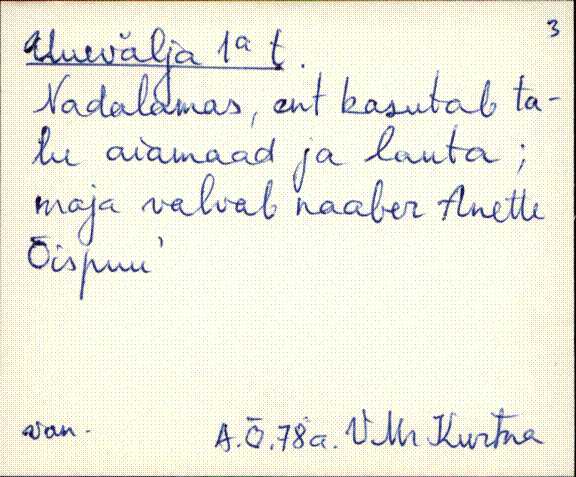 3
Uuevälja 1ª t.
Nadalamas, ent kasutab ta-
lu aiamaad ja lauta;
maja valvab naaber Anette
Õispuu'
van.
A.Õ. 78 a. VMr Kurtna